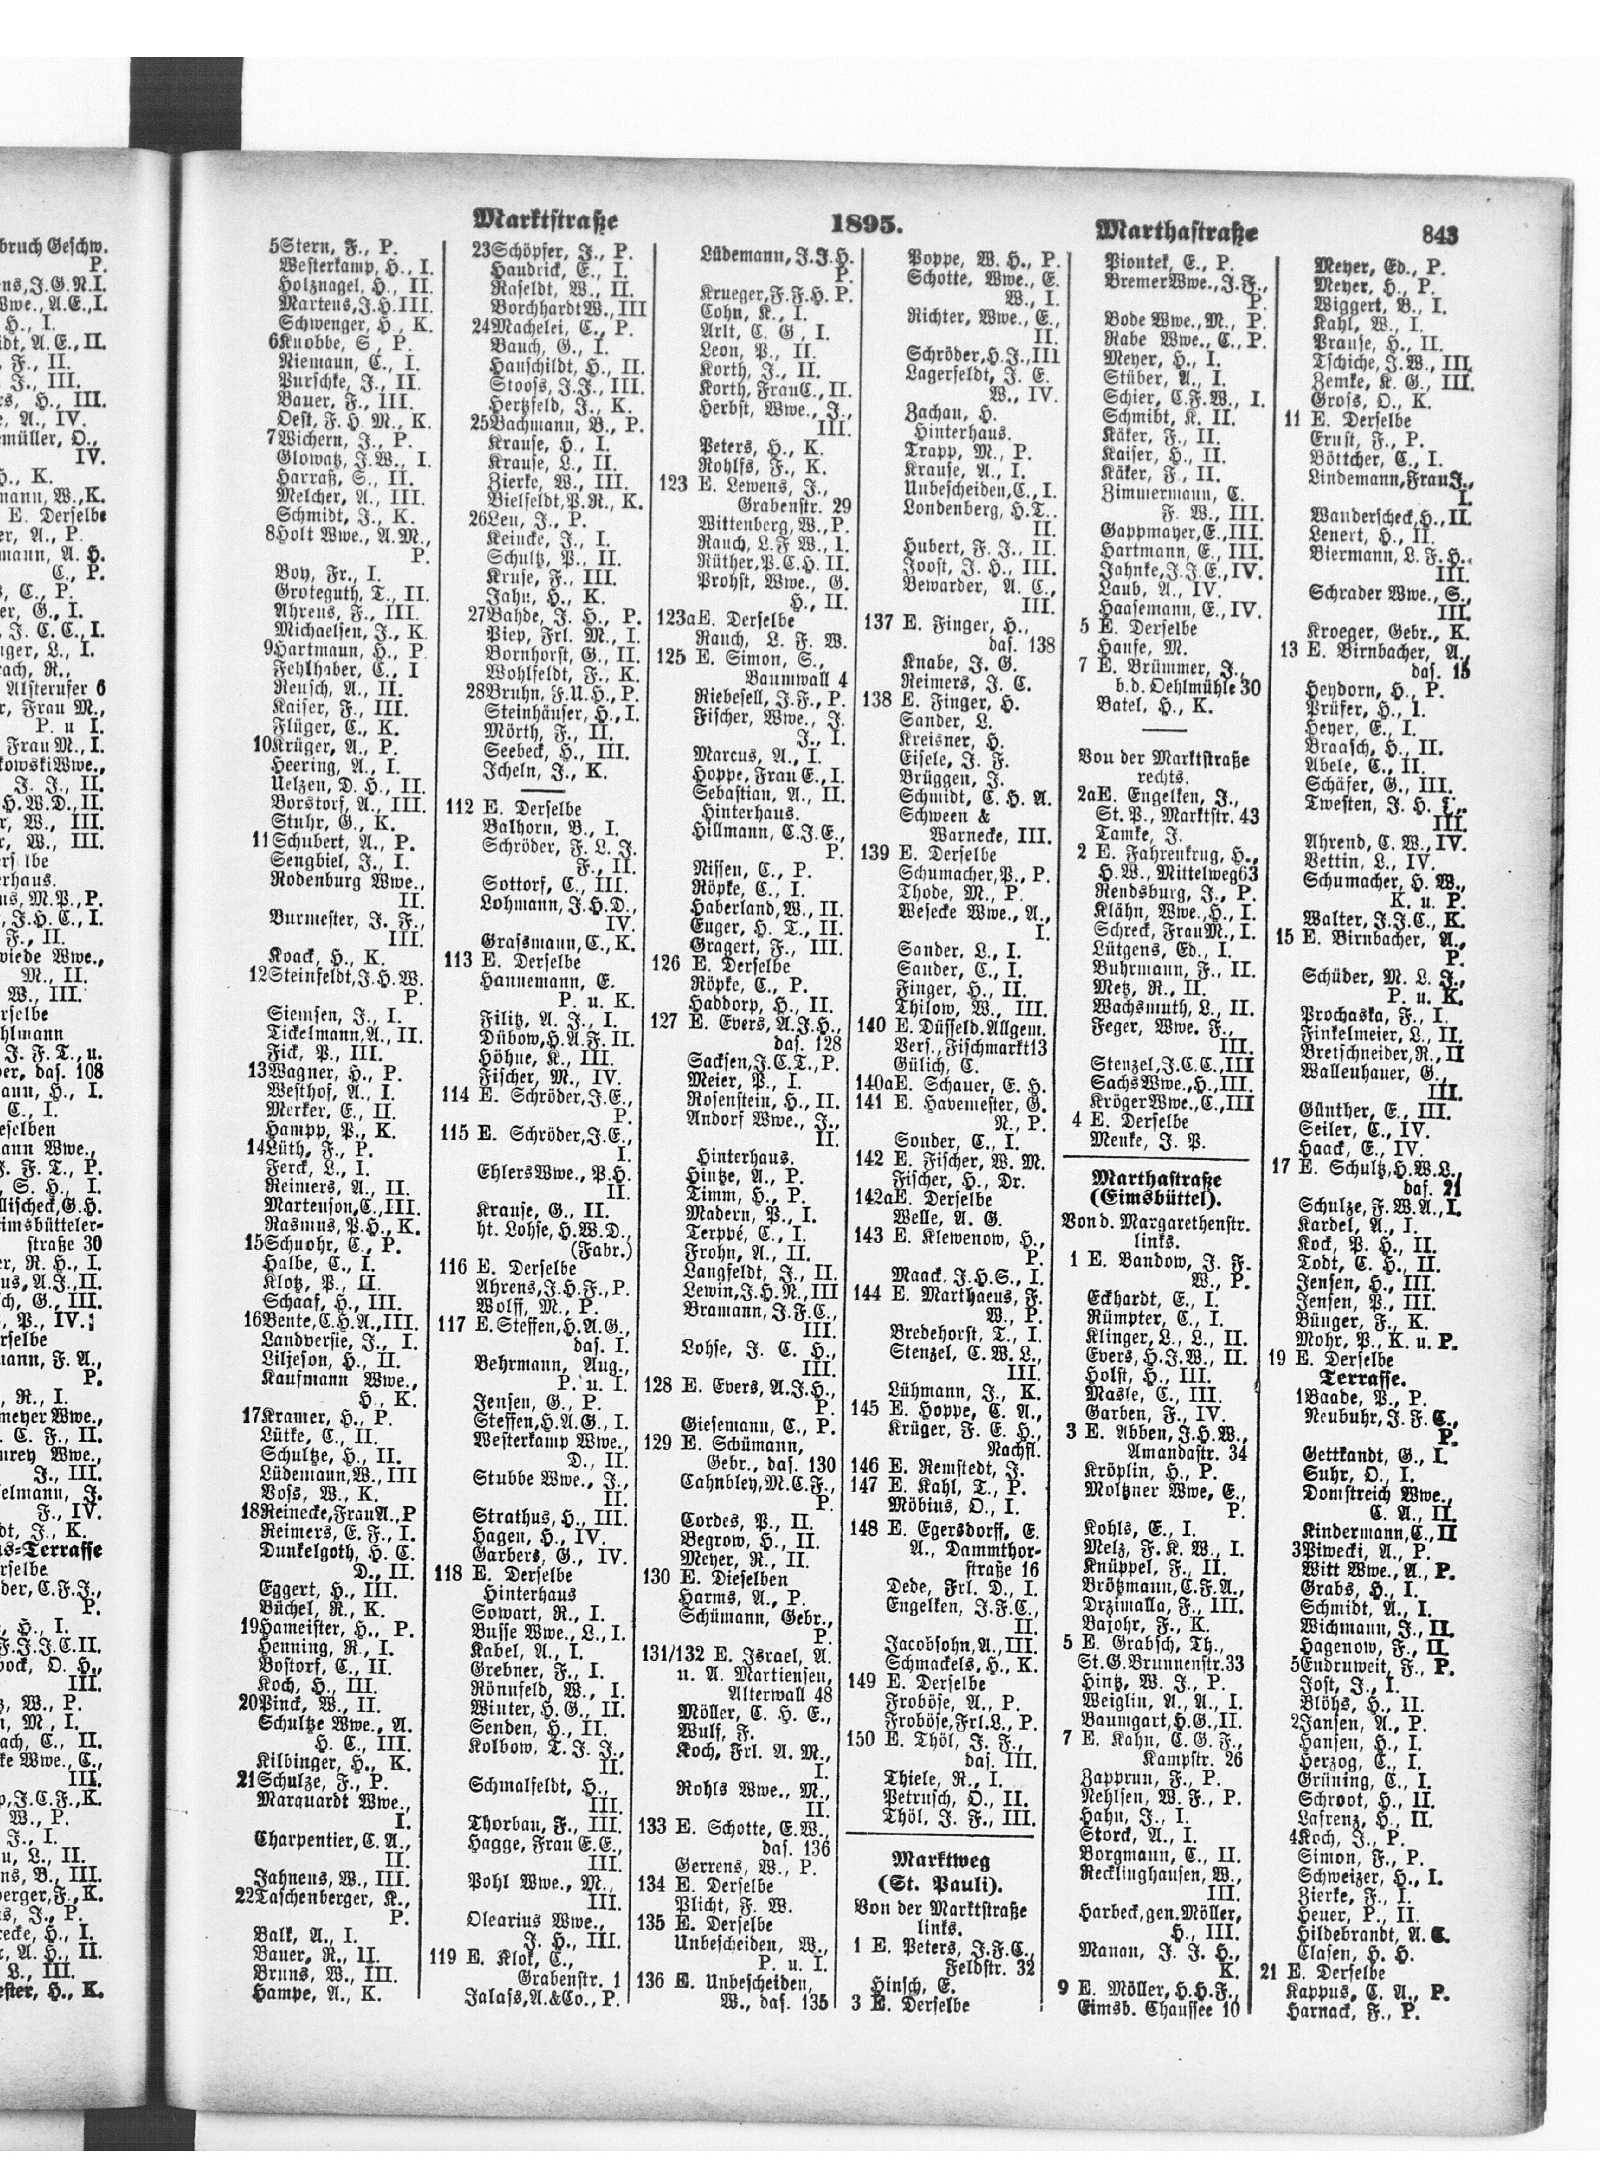 Marktstraße 1895. Marthastraße 843
5 Stern, F., P.
Westerkamp, H., I.
Holznagel, H., II.
Martens, J.H. III.
Schwenger, H., K.
6 Knobbe, S., P.
Niemann, C., I.
Purschke, J., II.
Bauer, F., III.
Oest, F. H. M., K.
7 Wichern, J., P.
Glowatz, J.W., I.
Harraß, S., II.
Melcher, A., III.
Schmidt, J., K.
8 Holt Wwe., A.M.,
P.
Boy, Fr., I.
Groteguth, T., II.
Ahrens, F., III.
Michaelsen, J., K.
9 Hartmann, H., P.
Fehlhaber, C., I
Reusch, A., II.
Kaiser, F., III.
Flüger, C., K.
10 Krüger, A., P.
Heering, A., I.
Uelzen, D. H., II.
Borstorf, A., III.
Stuhr, G., K.
11 Schubert, A., P.
Sengbiel, J., I.
Rodenburg Wwe.,
II.
Burmester, J. F.,
III.
Koack, H., K.
12 Steinfeldt, J.H.W.
P.
Siemsen, J., I.
Tickelmann, A., II.
Fick, P., III.
13 Wagner, H., P.
Westhof, A., I.
Merker, E., II.
Hampp, P., K.
14 Lüth, F., P.
Ferck, L., I.
Reimers, A., II.
Martenson, C., III.
Rasmus, P.H., K.
15 Schuohr, C., P.
Halbe, C., I.
Klotz, P., II.
Schaaf, H., III.
16 Bente, C.H.A., III.
Landversie, J., I.
Liljeson, H., II.
Kaufmann Wwe.,
H., K.
17 Kramer, H., P.
Lütke, C., II.
Schultze, H., II.
Lüdemann, W., III
Voss, W., K.
18 Reinecke, Frau A., P
Reimers, E. F., I.
Dunkelgoth, H. C.
D., II.
Eggert, H., III.
Büchel, R., K.
19 Hameister, H., P.
Henning, R., I.
Bostorf, C., II.
Koch, H., III.
20 Pinck, W., II.
Schultze Wwe., A.
H. C., III.
Kilbinger, H., K.
21 Schulze, F., P.
Marquardt Wwe.,
I.
Charpentier, C. A.,
II.
Jahnens, W., III.
22 Taschenberger, K.,
P.
Balk, A., I.
Bauer, R., II.
Bruns, W., III.
Hampe, A., K.
23 Schöpfer, J., P.
Haudrick, E., I.
Raseldt, W., II.
Borchhardt W., III
24 Machelei, C., P.
Bauch, G., I.
Hauschildt, H., II.
Stooß, J.J., III.
Hertzfeld, J., K.
25 Bachmann, B., P.
Krause, H., I.
Krause, L., II.
Zierke, W., III.
Bielfeldt, P.R., K.
26 Leu, J., P.
Keincke, J., I.
Schultz, P., II.
Kruse, F., III.
Jahn, H., K.
27 Bahde, J. H., P.
Piep, Frl. M., I.
Bornhorst, G., II.
Wohlfeldt, F., K.
28 Bruhn, F.U.H., P.
Steinhäuser, H., I.
Mörth, F., II.
Seebeck, H., III.
Icheln, J., K.
112 E. Derselbe
Balhorn, B., I.
Schröder, F. L. J.
F., II.
Sottorf, C., III.
Lohmann, J.H.D.,
IV.
Grassmann, C., K.
113 E. Derselbe
Hannemann, E.
P. u. K.
Filitz, A. J., I.
Dübow, H.A.F. II.
Höhne, K., III.
Fischer, M., IV.
114 E. Schröder, J.E.,
P.
115 E. Schröder, J.E.,
I.
Ehlers Wwe., P.H.
II.
Krause, G., II.
ht. Lohse, H.W.D.,
(Fabr.)
116 E. Derselbe
Ahrens, J.H.F., P.
Wolff, M., P.
117 E. Steffen, H.A.G.,
das. I.
Behrmann, Aug.,
P. u. I.
Jensen, G., P.
Steffen, H.A.G., I.
Westerkamp Wwe.,
D., II.
Stubbe Wwe., J.,
II.
Strathus, H., III.
Hagen, H., IV.
Garbers, G., IV.
118 E. Derselbe
Hinterhaus
Sowart, R., I.
Busse Wwe., L., I.
Kabel, A., I.
Grebner, F., I.
Rönnfeld, W., I.
Winter, H. G., II.
Senden, H., II.
Kolbow, T. J. J.,
II.
Schmalfeldt, H.,
III.
Thorbau, F., III.
Hagge, Frau E.E.,
III.
Pohl Wwe., M.,
III.
Olearius Wwe.,
J. H., III.
119 E. Klok, C.,
Grabenstr. 1
Jalass, A. & Co., P.
Lüdemann, J.J.H.
P.
Krueger, F.F.H. P.
Cohn, K., I.
Arlt, C. G., I.
Leon, P., II.
Korth, J., II.
Korth, Frau C., II.
Herbst, Wwe., J.,
III.
Peters, H., K.
Rohlfs, F., K.
123 E. Lewens, J.,
Grabenstr. 29
Wittenberg, W., P.
Rauch, L.F W., I.
Rüther, P.C.H. II.
Probst, Wwe., G.
H., II.
123a E. Derselbe
Rauch, L. F. W.
125 E. Simon, S.,
Baumwall 4
Riebesell, J.F., P.
Fischer, Wwe., J.
J., I.
Marcus, A., I.
Hoppe, Frau E., I.
Sebastian, A., II.
Hinterhaus.
Hillmann, C.J.E.,
P.
Nissen, C., P.
Röpke, C., I.
Haberland, W., II.
Euger, H. T., II.
Gragert, F., III.
126 E. Derselbe
Röpke, C., P.
Haddorp, H., II.
127 E. Evers, A.J.H.,
das. 128
Sacksen, J.C.T., P.
Meier, P., I.
Rosenstein, H., II.
Andorf Wwe., J.,
II.
Hinterhaus.
Hintze, A., P.
Timm, H., P.
Madern, P., I.
Terppé, C., I.
Frohn, A., II.
Langfeldt, J., II.
Lewin, J.H.N., III
Bramann, J.F.C.,
III.
Lohse, J. C. H.,
III.
128 E. Evers, A.J.H.,
P.
Giesemann, C., P.
129 E. Schümann,
Gebr., das. 130
Cahnbley, M.C.F.,
P.
Cordes, P., II.
Begrow, H., II.
Meyer, R., II.
130 E. Dieselben
Harms, A., P.
Schümann, Gebr.,
P.
131/132 E. Israel, A.
u. A. Martiensen,
Alterwall 48
Möller, C. H. E.,
Wulf, F.
Koch, Frl. A. M.,
I.
Rohls Wwe., M.,
II.
133 E. Schotte, E.W.,
das. 136
Gerrens, W., P.
134 E. Derselbe
Plicht, F. W.
135 E. Derselbe
Unbescheiden, W.,
P. u. I.
136 E. Unbescheiden,
W., das. 135
Poppe, W. H., P.
Schotte, Wwe., E.
W., I.
Richter, Wwe., E.,
II.
Schröder, H.J., III
Lagerfeldt, J. E.
W., IV.
Zachau, H.
Hinterhaus.
Trapp, M., P.
Krause, A., I.
Unbescheiden, C., I.
Londenberg, H.T..
II.
Hubert, F. J., II.
Joost, J. H., III.
Bewarder, A. C.,
III.
137 E. Finger, H.,
das. 138
Knabe, J. G.
Reimers, J. C.
138 E. Finger, H.
Sander, L.
Kreisner, H.
Eisele, J. F.
Brüggen, J.
Schmidt, C. H. A.
Schween &
Warnecke, III.
139 E. Derselbe
Schumacher, P., P.
Thode, M., P.
Wesecke Wwe., A.,
I.
Sander, L., I.
Sander, C., I.
Finger, H., II.
Thilow, W., III.
140 E. Düsseld. Allgem.
Vers., Fischmarkt 13
Gülich, C.
140a E. Schauer, E. H.
141 E. Havemester, G.
N., P.
Sonder, C., I.
142 E. Fischer, W. M.
Fischer, H., Dr.
142a E. Derselbe
Welle, A. G.
143 E. Klewenow, H.,
P.
Maack, J.H.S., I.
144 E. Marthaeus, F.
W., P.
Bredehorst, T., I.
Stenzel, C. W. L.,
III.
Lühmann, J., K.
145 E. Hoppe, C. A.,
Krüger, F. E. H.,
Nachfl.
146 E. Remstedt, J.
147 E. Kahl, T., P.
Möbius, O., I.
148 E. Egersdorff, E.
A., Dammthor-
straße 16
Dede, Frl. D., I.
Engelken, J.F.C.,
II.
Jacobsohn, A., III.
Schmackels, H., K.
149 E. Derselbe
Froböse, A., P.
Froböse, Frl. L., P.
150 E. Thöl, J. F.,
das. III.
Thiele, R., I.
Petrusch, O., II.
Thöl, J. F., III.
Marktweg
(St. Pauli).
Von der Marktstraße
links.
1 E. Peters, J.F.C.,
Feldstr. 32
Hinsch, E.
3 E. Derselbe
Piontek, E., P.
Bremer Wwe., J.F.,
P.
Bode Wwe., M., P.
Rabe Wwe., C., P.
Meyer, H., I.
Stüber, A., I.
Schier, C.F.W., I.
Schmibt, K. II.
Käker, F., II.
Kaiser, H., II.
Käker, F., II.
Zimmermann, C.
F. W., III.
Gappmayer, E., III.
Hartmann, E., III.
Jahnke, J.J.E., IV.
Laub, A., IV.
Haasemann, E., IV.
5 E. Derselbe
Hause, M.
7 E. Brümmer, J.,
b.d. Oehlmühle 30
Batel, H., K.
Von der Marktstraße
rechts.
2a E. Engelken, J.,
St. P., Marktstr. 43
Tamke, J.
2 E. Fahrenkrug, H.,
H.W., Mittelweg 63
Rendsburg, J., P.
Klähn, Wwe., H., I.
Schreck, Frau M., I.
Lütgens, Ed., I.
Buhrmann, F., II.
Metz, R., II.
Wachsmuth, L., II.
Feger, Wwe. F.,
III.
Stenzel, J.C.C., III
Sachs Wwe., H., III.
Kröger Wwe., C., III
4 E. Derselbe
Menke, J. P.
Marthastraße
(Eimsbüttel).
Von d. Margarethenstr.
links.
1 E. Bandow, J. F.
W., P.
Eckhardt, E., I.
Rümpter, C., I.
Klinger, L., L., II.
Evers, H.J.W., II.
Holst, H., III.
Masle, C., III.
Garben, F., IV.
3 E. Abben, J.H.W.,
Amandastr. 34
Kröplin, H., P.
Moltzner Wwe, E.,
P.
Kohls, E., I.
Melz, F. K. W., I.
Knüppel, F., II.
Brötzmann, C.F.A.,
Drzimalla, F., III.
Bajohr, F., K.
5 E. Grabsch, Th.,
St. G. Brunnenstr. 33
Hintz, W. J., P.
Weiglin, A., A., I.
Baumgart, H.G., II.
7 E. Kahn, C. G. F.,
Kampstr. 26
Zapprun, F., P.
Nehlsen, W. F., P.
Hahn, J., I.
Storck, A., I.
Borgmann, C., II.
Recklinghausen, W.,
III.
Harbeck, gen. Möller,
H., III.
Manau, J. J. H.,
K.
9 E. Möller, H.H.F.,
Eimsb. Chaussee 10
Meyer, Ed., P.
Meyer, H., P.
Wiggert, B., I.
Kahl, W., I.
Prause, H., II.
Tschiche, J.W., III.
Zemke, K. G., III.
Gross, O., K.
11 E. Derselbe
Ernst, F., P.
Böttcher, C., I.
Lindemann, Frau J.,
I.
Wanderscheck, H., II.
Lenert, H., II.
Biermann, L. F. H.,
III.
Schrader Wwe., S.,
III.
Kroeger, Gebr., K.
13 E. Birnbacher, A.,
das. 15
Heydorn, H., P.
Prüfer, H., I.
Heyer, E., I.
Braasch, H., II.
Abele, C., II.
Schäfer, G., III.
Twesten, J. H.
III.
Ahrend, C. W., IV.
Bettin, L., IV.
Schumacher, H. W.,
K. u. P.
Walter, J.J.C., K.
15 E. Birnbacher, A.,
P.
Schüder, M. L. J.,
P. u. K.
Prochaska, F., I.
Finkelmeier, L., II.
Bretschneider, R., II
Wallenhauer, G.,
III.
Günther, E., III.
Seiler, C., IV.
Haack, E., IV.
17 E. Schultz, H.W.L.,
das. 21
Schulze, F.W.A., I.
Kardel, A., I.
Kock, P. H., II.
Todt, C. H., II.
Jensen, H., III.
Jensen, P., III.
Bünger, F., K.
Mohr, P., K. u. P.
19 E. Derselbe
Terrasse.
1 Baade, P., P.
Neubuhr, J. F. C.,
P.
Gettkandt, G., I.
Suhr, O., I.
Domstreich Wwe.,
C. A., II.
Kindermann, C., II
3 Piwecki, A., P.
Witt Wwe., A., P.
Grabs, H., I.
Schmidt, A., I.
Wichmann, J., II.
Hagenow, F., II.
5 Endruweit, F., P.
Jost, J., I.
Blöhs, H., II.
2 Jansen, A., P.
Hansen, H., I.
Herzog, C., I.
Grüning, C., I.
Schroot, H., II.
Lafrenz, H., II.
4 Koch, J., P.
Simon, F., P.
Schweizer, H., I.
Zierke, F., I.
Heuer, P., II.
Hildebrandt, A. C.
Clasen, H. H.
21 E. Derselbe
Kappus, C. A., P.
Harnack, F., P.